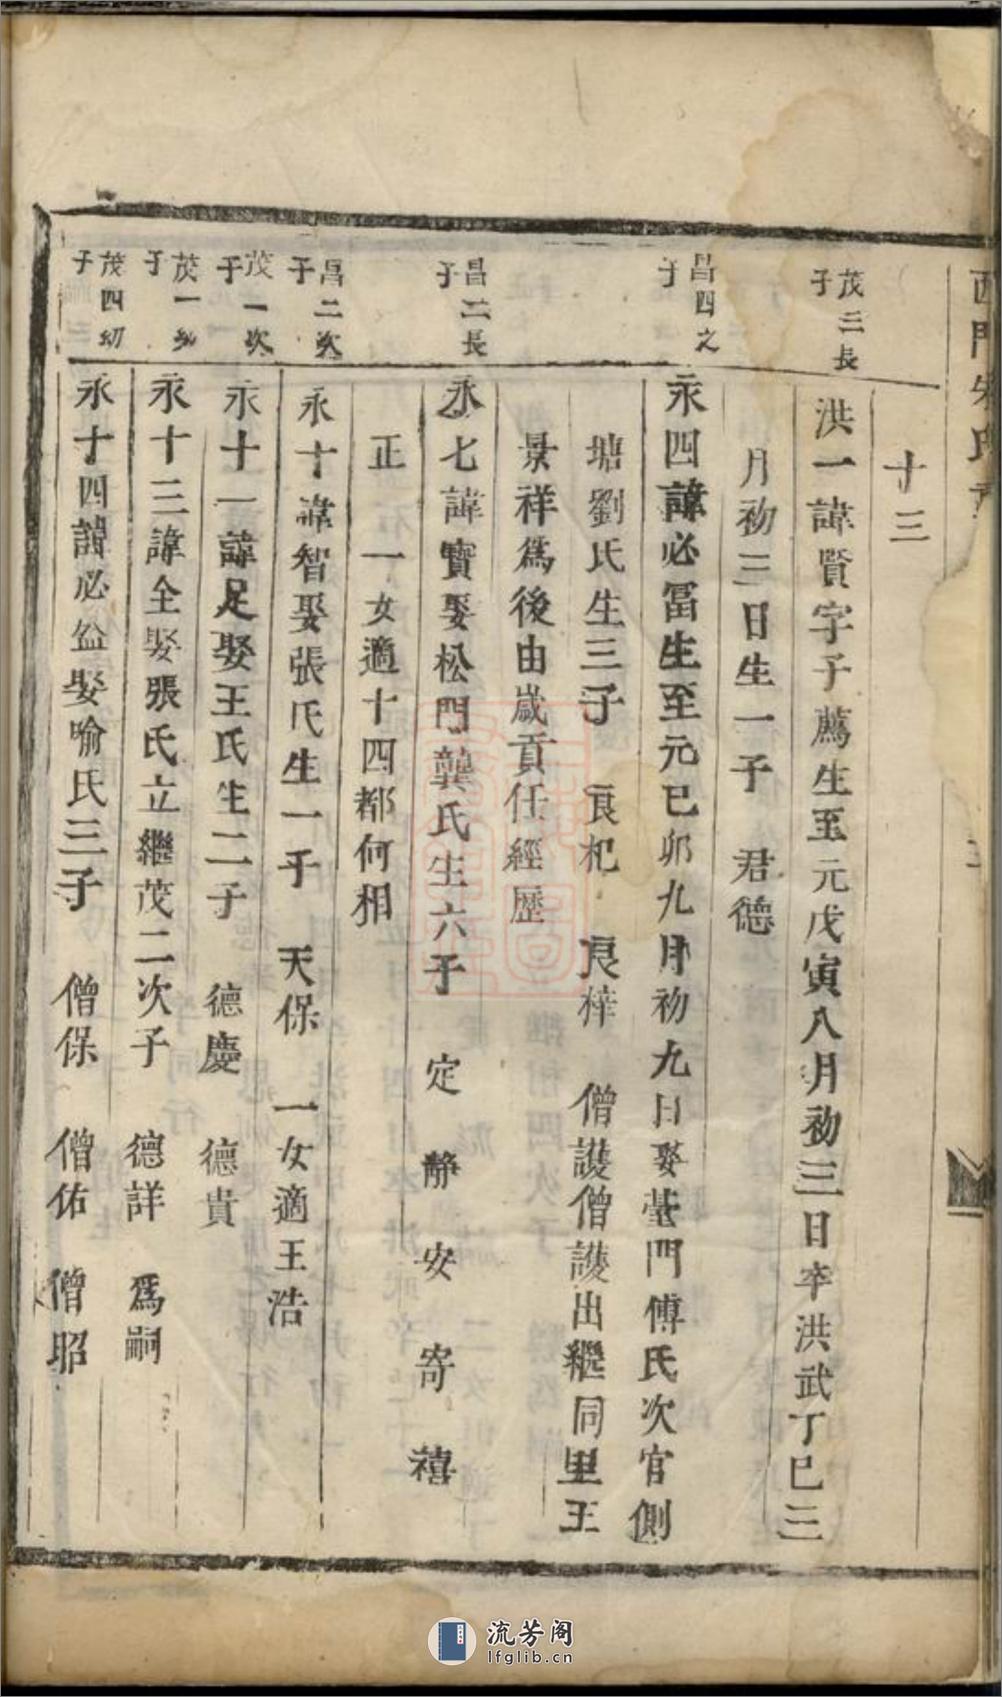 西門朱氏
十三
茂三長子
洪一諱賢字子薦生至元戊寅八月初三日卒洪武丁巳三
月初三日生一子　君德
昌四之子
永四諱必冨生至元己卯九月初九日娶臺門傅氏次官側
塘劉氏生三子　良杞　良梓　僧護僧護出繼同里王
景祥爲後由歲貢任經歷
昌二長子
永七諱寳娶松門龔氏生六子　定　靜　安　寄　禧
正　一女適十四都何相
昌二次子
永十諱智娶張氏生一子　天保　一女適王浩
茂一次子
永十一諱足娶王氏生二子　德慶　德貴
茂一幼子
永十三諱全娶張氏立繼茂二次子　德詳　爲嗣
茂四幼子
永十四諱必益娶喻氏三子　僧保　僧佑　僧昭
流芳阁
lfglib.cn